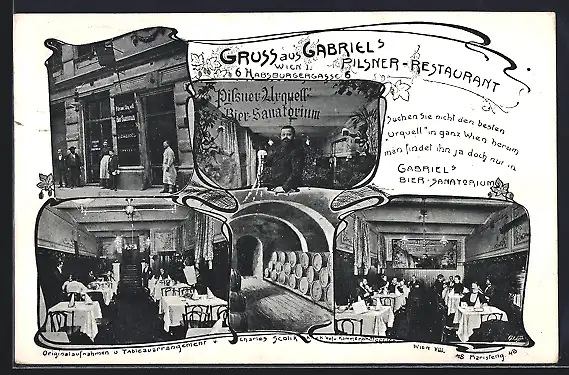 Gruss aus Gabriels
Pilsner-Restaurant
Wien I
6 Habsburgergasse 6
Pilsner Urquell
Bier-Sanatorium
Suchen Sie nicht den besten
Urquell in ganz Wien herum
man findet ihn ja doch nur in
Gabriels
Bier-Sanatorium
Originalaufnahmen u Tableauarrangement v Charles Scolik
Wien VIII.
48 Maristeng. 48